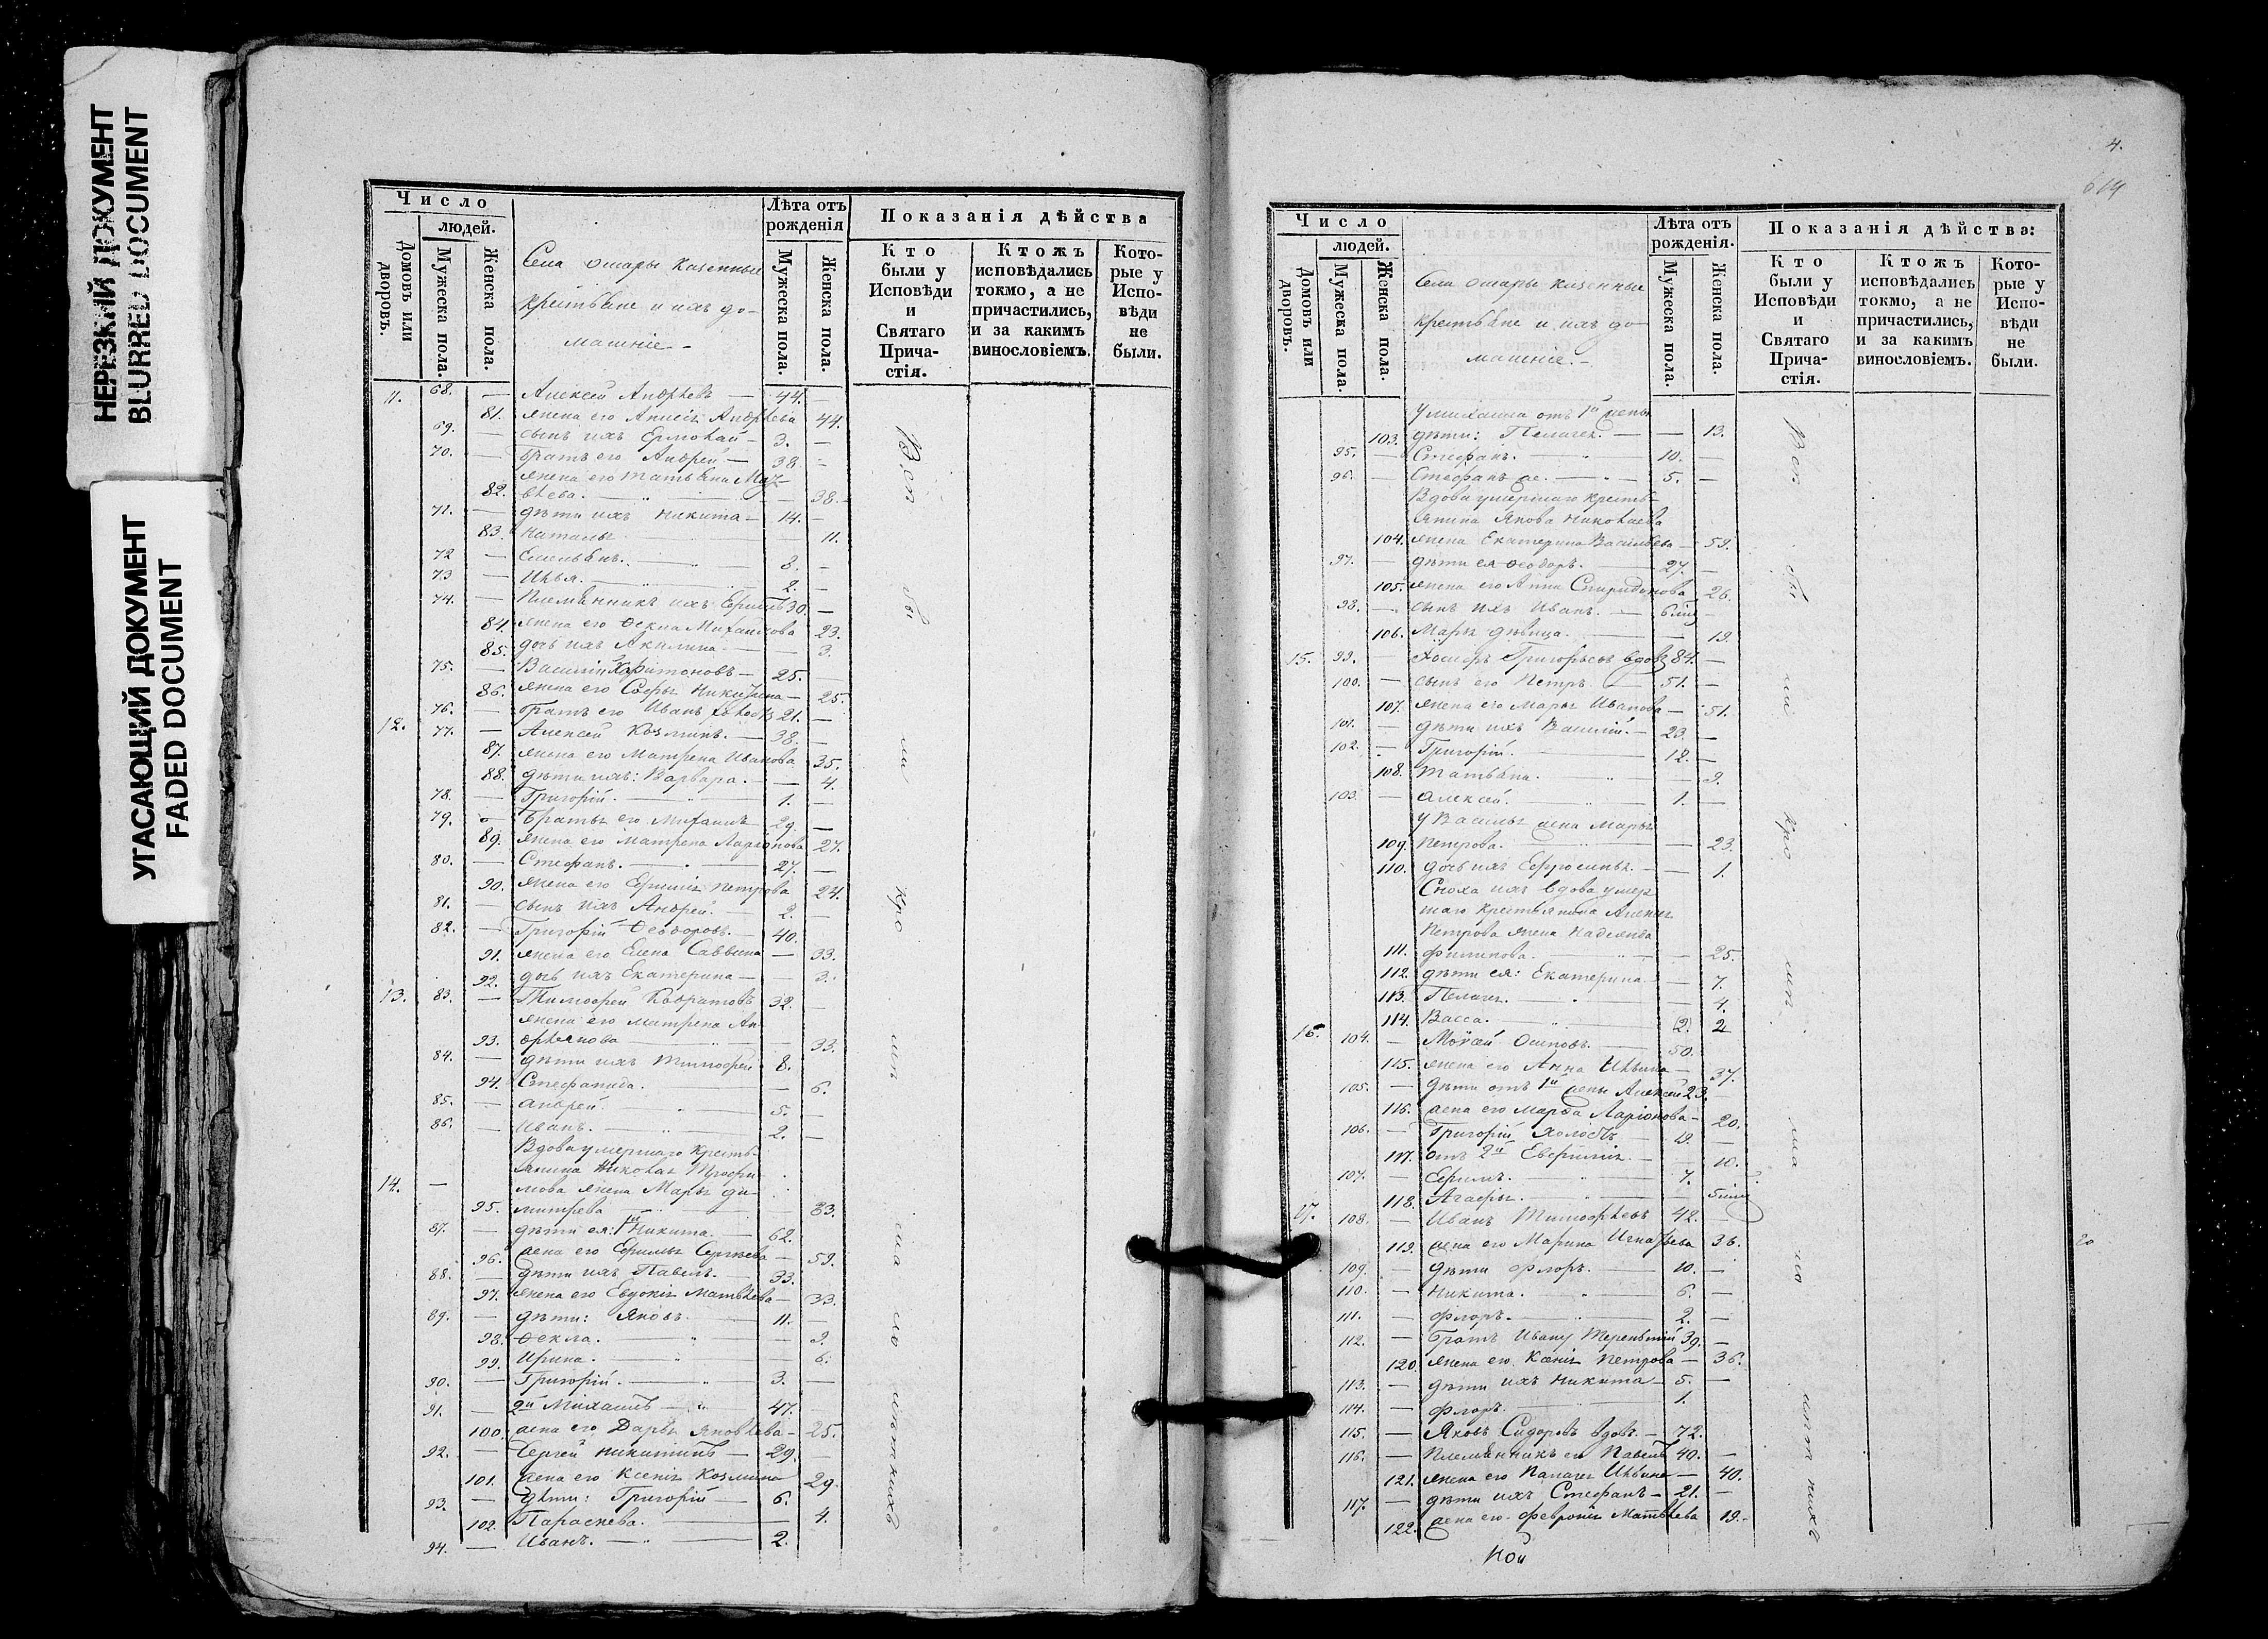 НЕРЕЗКИЙ ДОКУМЕНТ
BLURRED DOCUMENT
УГАСАЮЩИЙ ДОКУМЕНТ
FADED DOCUMENT
Число
людей.
Домовъ или дворовъ.
Мужеска пола.
Женска пола.
Села казенные
крестьяне и ихъ до-
машніе
Лѣта отъ рожденія
Мужеска пола.
Женска пола.
Показанія дѣйства
Кто были у Исповѣди и Святаго Прича-стія.
Ктожъ исповѣдались токмо, а не причастились, и за какимъ винословіемъ.
Кото-рые у Испо-вѣди не были.
11. 68. — Алексей Андреевъ — 44. —
81. жена его Андреева 44.
69. — сынъ ихъ Ермолай — 3. —
70. — братъ его Андрей — 38. —
жена его Татьяна Мат-
82. вѣева. — 38.
71. — дѣти ихъ Никита — 14. —
83. Наталья — 11.
72 — Емельянъ. 8. —
73 — Илья. 2. —
74. — Племянникъ ихъ Ефимъ 30. —
84. жена его Ѳекла Михайлова 23.
85. дочь ихъ Акилина — 3.
75. — Василий Харитоновъ — 25. —
86. жена его Софья Никитина — 25.
76. — братъ его Иванъ 21. —
12. 77. — Алексей Козминъ. — 38. —
87. жена его Матрена Иванова 35.
88. дѣти ихъ: Варвара. — 4.
78. — Григорій. 1. —
79. Братья его Михаилъ 29. —
89. жена его Матрена Ларіонова 27.
80. — Стефанъ. — 27. —
90. жена его Петрова 24.
81. — сынъ ихъ Андрей. — 2. —
82. — Григорій Ѳеодоровъ. — 40. —
91. жена его Елена Саввина — 33.
92. дочь ихъ Екатерина — 3.
13. 83. — Тимофей Кодратовъ 32. —
жена его Матрена Ан-
93. дреянова — 33.
84. — дѣти ихъ Тимофей 8.
94. Стефанида. — 6.
85. — Андрей. — 5. —
86. — Иванъ. — 2. —
Вдова умершаго кресть-
янина Николая Трофи
14. — мова жена Марья Ди-
95. митрева — 83.
87. — дѣти ея: 1й Никита. — 62.
96. жена его Сергѣева — 59.
88. — дѣти ихъ Павелъ. — 33.
97. жена его Евдокія Матвѣева — 33.
89. — дѣти: Яковъ. 11. —
98. Ѳекла. — 9.
99. Ирина. — 6.
90. — Григорій. — 3. —
91. — 2й Михаилъ — 47. —
100. жена его Дарья Яковлева — 25.
92. — Сергей Никитинъ — 29. —
101. жена его Ксенія Козмина 29.
93. — дѣти: Григорій — 6. —
102. Параскева. — 4.
94. — Иванъ. — 2.
4.
614
Число
людей.
Домовъ или дворовъ.
Мужеска пола.
Женска пола.
Села казенные
крестьяне и ихъ до-
машніе.
Лѣта отъ рожденія.
Мужеска пола.
Женска пола.
Показанія дѣйства:
Кто были у Исповѣди и Святаго Прича-стія.
Ктожъ исповѣдались токмо, а не причастились, и за какимъ винословіемъ.
Кото-рые у Испо-вѣди не были.
У Михаила отъ 1й жены
103. дѣти: Пелагея. — 13.
95. — Стефанъ. — 10. —
96. — Стефанъ же. — 5. —
Вдова умершаго кресть-
янина Якова Николаева
104. жена Екатерина Васильева — 59.
97. — дѣти ея Ѳеодоръ. — 27. —
105. жена его Анна Спиридонова 26.
98. — сынъ ихъ Иванъ. — 6 —
106. Марья дѣвица. — 19.
15. 99. — Григорьевъ вдовъ 84. —
100. — сынъ его Петръ. — 51. —
107. жена его Марья Иванова — 51.
101. — дѣти ихъ Василій. — 23. —
102. — Григорій. — 12. —
108. Татьяна. — 9.
103. — Алексей. — 1. —
У Василья жена Марья
109. Петрова. — 23.
110. дочь ихъ Ефросинья. — 1.
Сноха ихъ вдова умер
шаго крестьянина Алексея
Петрова жена Надежда
111. Филипова. — 25.
112. дѣти ея: Екатерина — 7.
113. Пелагея. — 4.
114. Васса. — 2
16. 104. — Мойсей Осиповъ. — 50.
115. жена его Анна Ильина — 37.
105. — дѣти отъ 1й жены Алексей 23. —
116. жена его Марѳа Ларіонова — 20.
106. — Григорій холостъ — 19. —
117. отъ 2й Евфимія. — 10.
107. — Ефимъ. — 7.
118. Агафья. — 5
17. 108. — Иванъ Тимофѣевъ 42. —
119. жена его Марина Игнатьева 36.
109. — дѣти Флоръ. — 10. —
110. — Никита. — 6. —
111. — Флоръ. — 2. —
112. — Братъ Ивану Терентий 39. —
120. жена его Ксенія Петрова — 36.
113. — дѣти ихъ Никита — 5. —
114. — Флоръ. — 1.
115. — Яковъ Сидоровъ вдовъ. — 72.
116. — Племянникъ его Павелъ 40. —
121. жена его Палагея Ильина — 40.
117. — дѣти ихъ Стефанъ — 21. —
122. жена его Февронія Матвѣева 19. —
кой